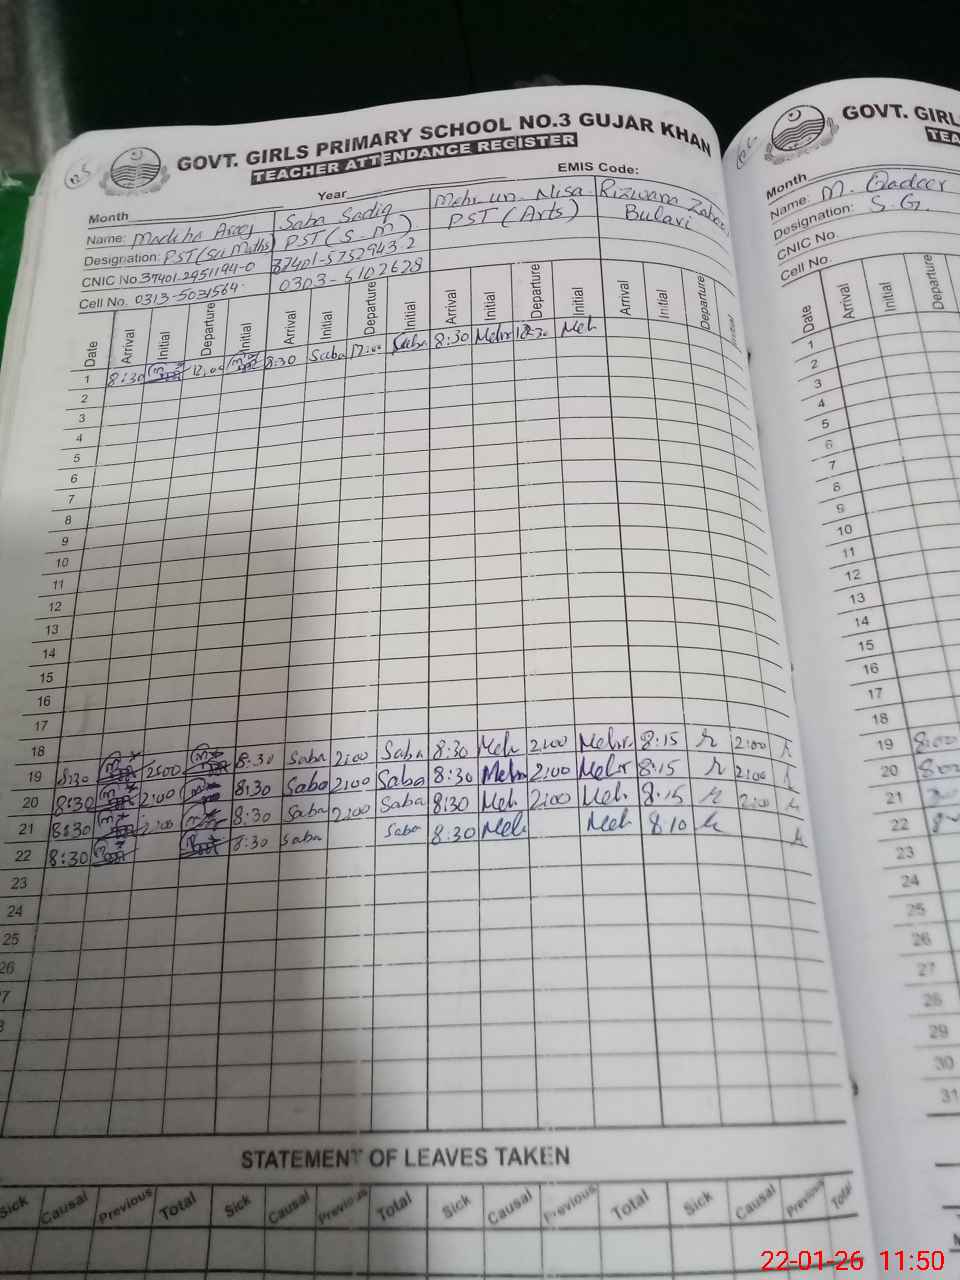 GOVT. GIRLS PRIMARY SCHOOL NO.3 GUJAR KHAN
TEACHER ATTENDANCE REGISTER
EMIS Code:
Month Year
Name: Madiha Saba Sadiq Mehr un Nisa Rizwana
Designation: PST (Sci Maths) PST (S.M) PST (Arts) Bulavi
CNIC No. 37401-2951194-0 37401-5752943-2
Cell No. 0313-5031564 0303-5102628
Date Arrival Initial Departure Initial Arrival Initial Departure Initial Arrival Initial Departure Initial Arrival Initial Departure Initial
1 8:30 12:00 8:30 Saba 12:00 Saba 8:30 Mehr 12:30 Meh
2
3
4
5
6
7
8
9
10
11
12
13
14
15
16
17
18
19 8:30 2:00 8:30 Saba 2:00 Saba 8:30 Meh 2:00 Mehr 8:15 r 2:00 r
20 8:30 2:00 8:30 Saba 2:00 Saba 8:30 Mehr 2:00 Mehr 8:15 r 2:00
21 8:30 2:00 8:30 Saba 2:00 Saba 8:30 Meh 2:00 Meh 8:15 r 2:00 r
22 8:30 8:30 Saba Saba 8:30 Meh Meh 8:10 r r
23
24
25
26
7
STATEMENT OF LEAVES TAKEN
Sick Causal Previous Total Sick Causal Previous Total Sick Causal Previous Total Sick Causal Previous Total
GOVT. GIRL
TEA
Month
Name: M. Qadeer
Designation: S.G.
CNIC No.
Cell No.
Date Arrival Initial Departure
1
2
3
4
5
6
7
8
9
10
11
12
13
14
15
16
17
18
19 8:00
20 8:00
21
22
23
24
25
26
27
28
29
30
31
22-01-26 11:50